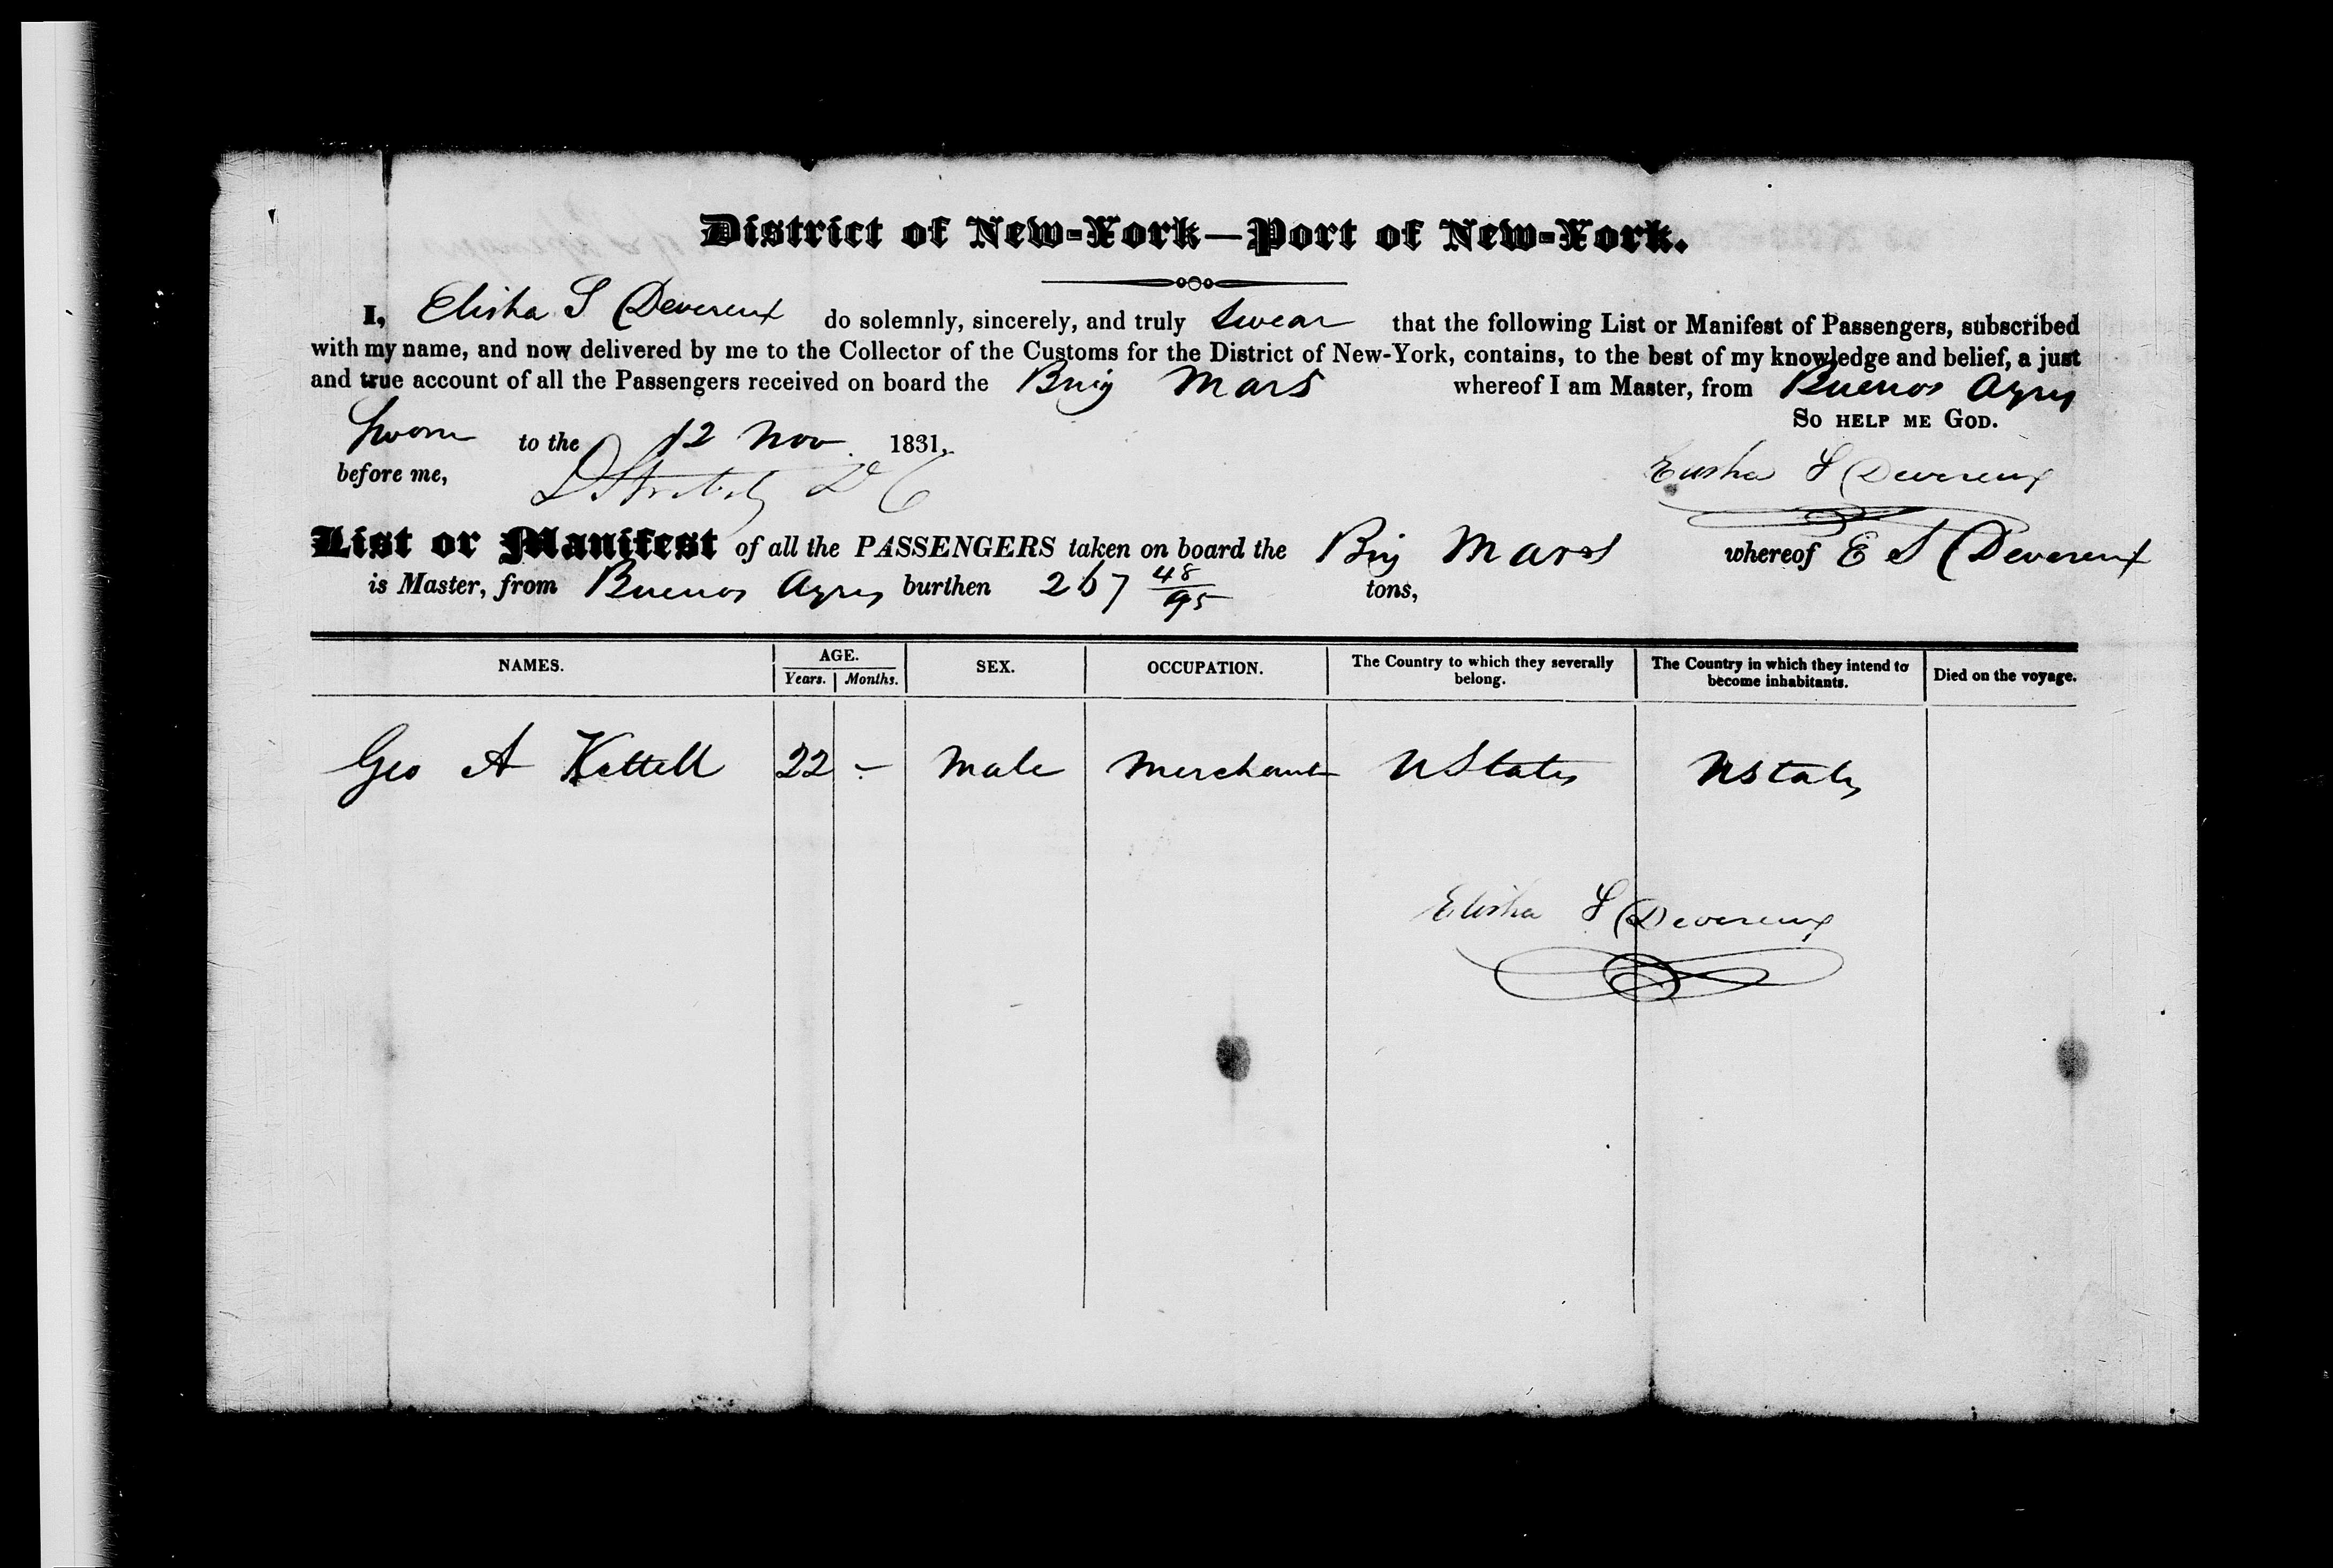 District of New-York—Port of New-York.
I, Elisha S Devereux do solemnly, sincerely, and truly Swear that the following List or Manifest of Passengers, subscribed
with my name, and now delivered by me to the Collector of the Customs for the District of New-York, contains, to the best of my knowledge and belief, a just
and true account of all the Passengers received on board the Brig Mars whereof I am Master, from Buenos Ayres
So help me God.
Sworn to the 12 Nov 1831,
before me,
Elisha S Devereux
List or Manifest of all the PASSENGERS taken on board the Brig Mars whereof E S Devereux
is Master, from Buenos Ayres burthen 267 48/95 tons,
NAMES. AGE. Years. Months. SEX. OCCUPATION. The Country to which they severally belong. The Country in which they intend to become inhabitants. Died on the voyage.
Geo A Kettell 22 - Male Merchant UStates UStates
Elisha S Devereux